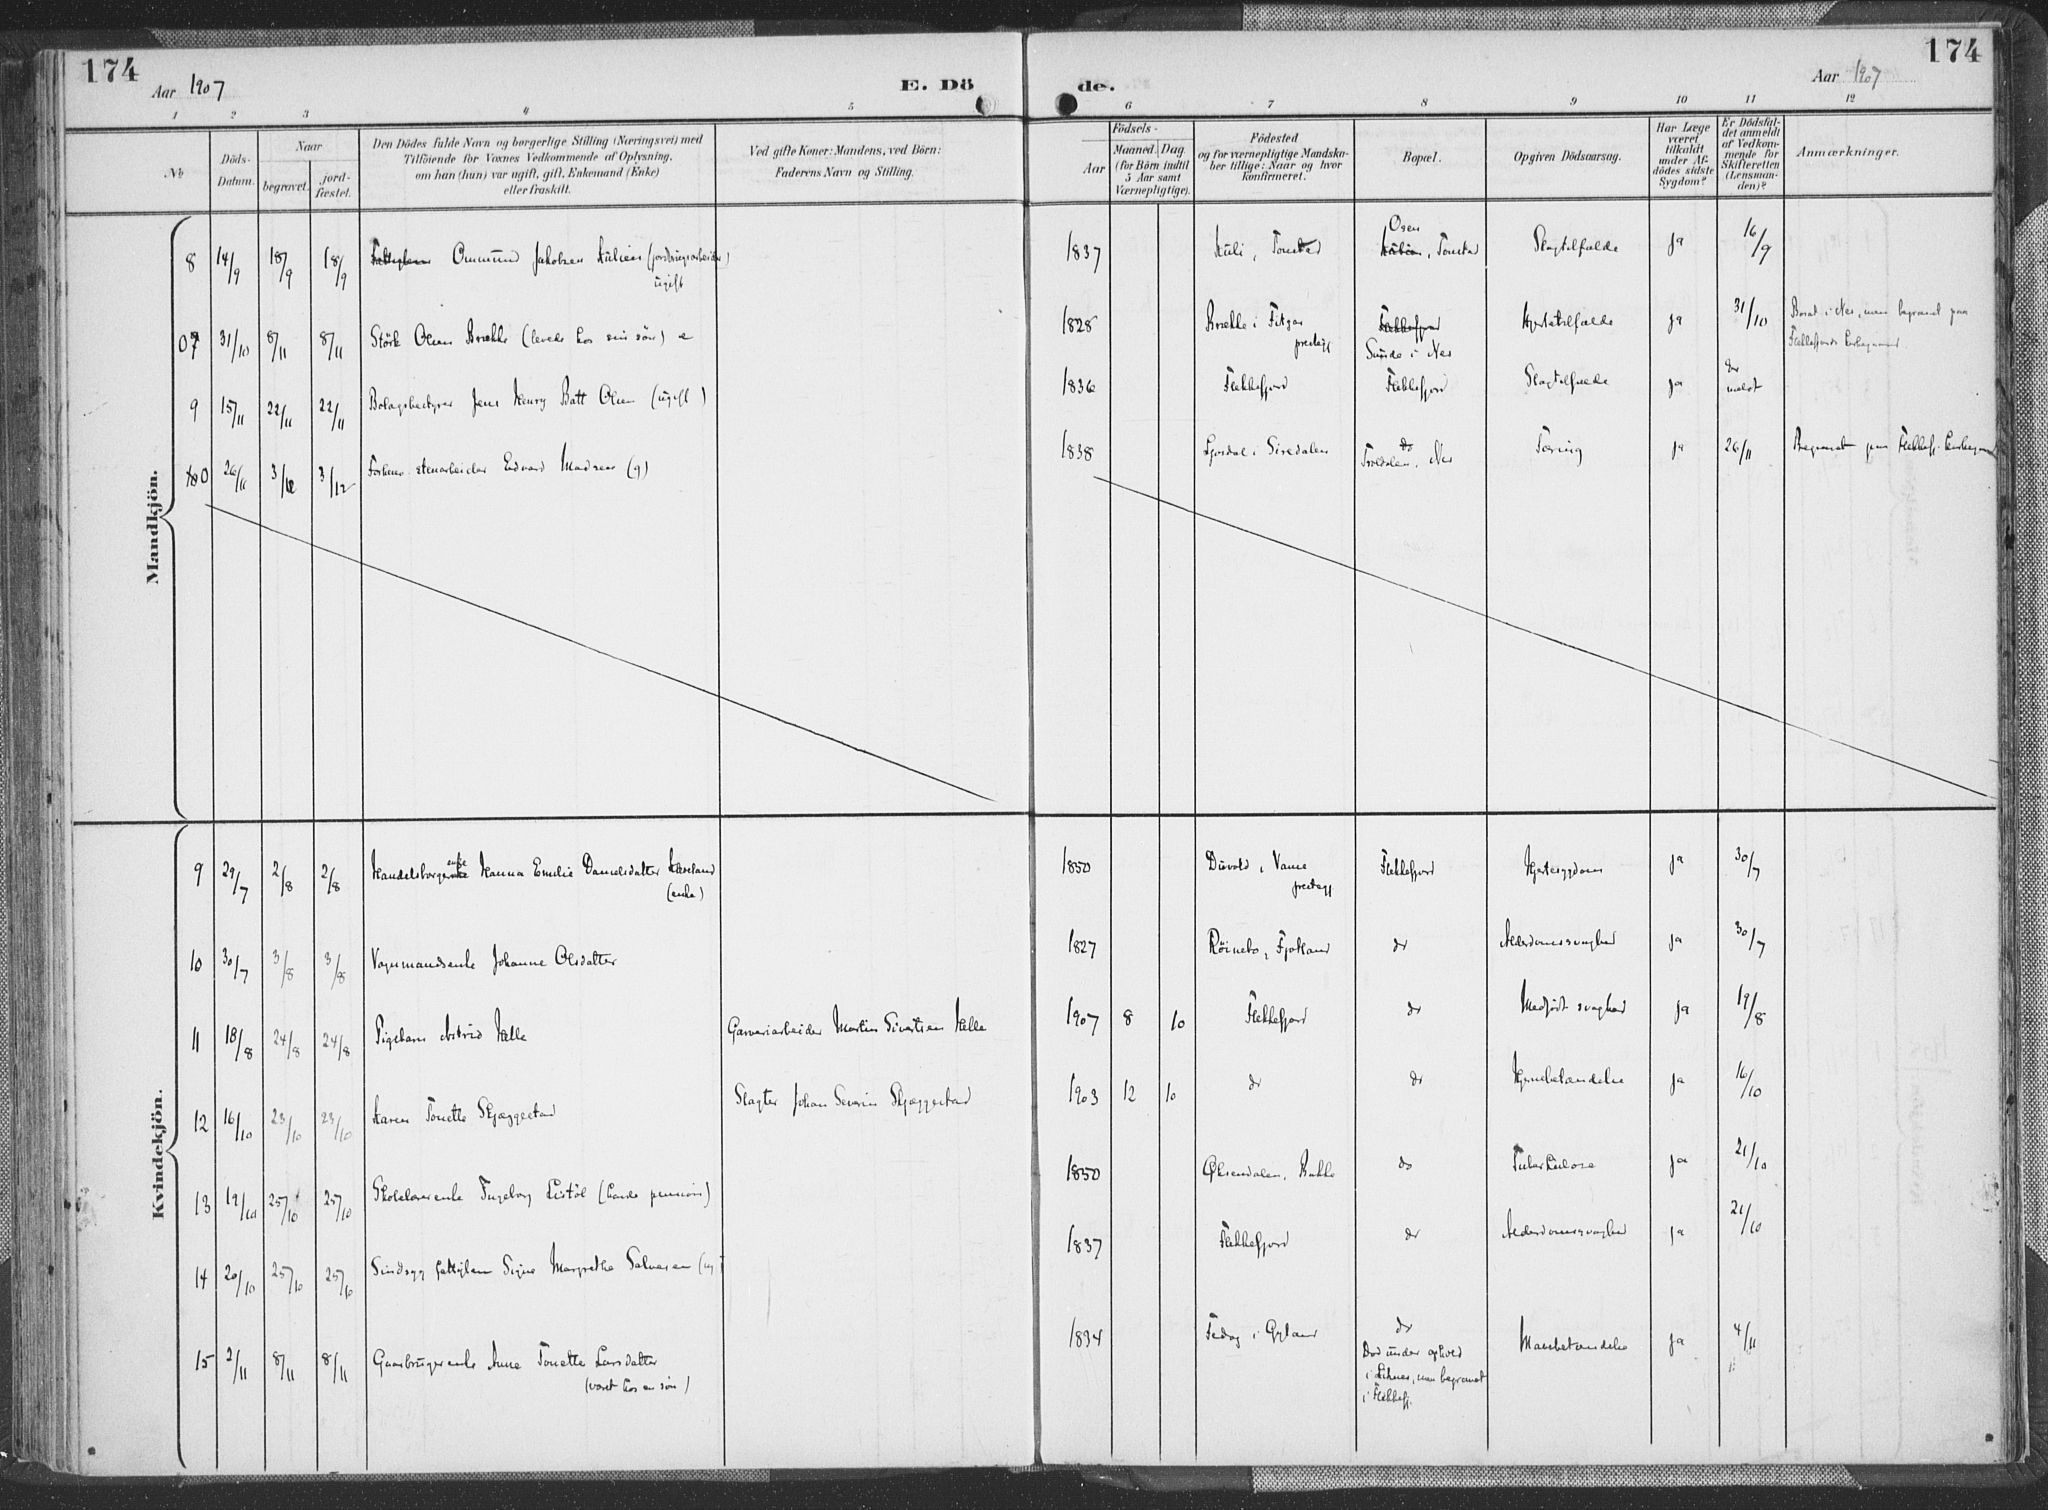 174
Aar 1907
E. Dö
de.
Aar 1907
174
1 2 3 4 5 6 7 8 9 10 11 12
No
Döds-
Datum.
Naar
begravet.
jord-
fæstet.
Den Dödes fulde Navn og borgerlige Stilling (Næringsvei) med
Tilföiende for Voxnes Vedkommende af Oplysning,
om han (hun) var ugift, gift, Enkemand (Enke)
eller fraskilt.
Ved gifte Koner: Mandens, ved Börn:
Faderens Navn og Stilling.
Födsels-
Aar
Maaned. Dag.
(for Börn indtil
5 Aar samt
Værnepligtige).
Födested
og for værnepligtige Mandska-
ber tillige: Naar og hvor
konfirmeret.
Bopæl.
Opgiven Dödsaarsag.
Har Læge
været
tilkaldt
under Af-
dödes sidste
Sygdom?
Er Dödsfal-
det anmeldt
af Vedkom-
mende for
Skifteretten
(Lensman-
den)?
Anmærkninger.
Mandkjön.
8 14/9 18/9 18/9 Ommund Jakobsen (jordbrugsarbeider) 1837 Tonstad Osen, Tonstad Slagtilfælde ja 16/9
ugift
31/10 8/11 8/11 Störk Olsen Brække (levede hos sin sön) e 1828 Brække i Fitjar Flekkefjord Hjertetilfælde ja 31/10 Bosat i Nes, men begravet paa
prestegj Sunde i Nes Flekkefjords
9 15/11 22/11 22/11 Jens Henry Batt Olsen (ugift) 1836 Flekkefjord Flekkefjord Slagtilfælde ja
meldt
26/11 3/12 3/12 stenarbeider Edvard Madsen (g) 1838 i Siredalen do Tæring ja 26/11 Begravet paa Flekkefj.
Nes
Kvindekjön.
9 29/7 2/8 2/8 Handelsborgerenke Hanna Emilie Danielsdatter 1850 Vanse Flekkefjord Hjertesygdom ja 30/7
(enke) prestegj
10 30/7 3/8 3/8 Vognmandsenke Johanne Olsdatter 1827 Röinebo, Fjotland do Alderdomssvaghed ja 30/7
11 18/8 24/8 24/8 Pigebarn Astrid Helle Garveriarbeider Martin Sivertsen Helle 1907 8 10 Flekkefjord do Medfödt svaghed ja 19/8
12 16/10 23/10 23/10 Karen Tonette Skjæggestad Slagter Johan Severin Skjæggestad 1903 12 10 do do Hjernebetændelse ja 16/10
13 19/10 25/10 25/10 Ingeborg Listöl (havde pension) 1850 Øksendalen, Bakke do Tuberkulose ja 21/10
14 20/10 25/10 25/10 Sindssyg fattiglem Signe Margrethe Salvesen (ug) 1837 Flekkefjord do Alderdomssvaghed ja 21/10
15 2/11 8/11 8/11 Gaardbrugerenke Anne Tonette Larsdatter 1834 i Gyland do Mavebetændelse ja 4/11
(været hos en sön) Död under ophold
i Liknes, men begravet
i Flekkefj.